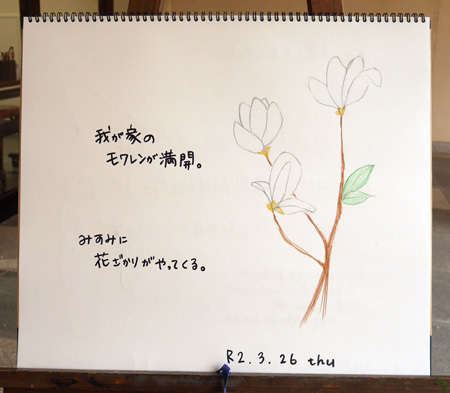 我が家の
モワレンが満開。
みすみに
花ざかりがやってくる。
R2.3.26 thu